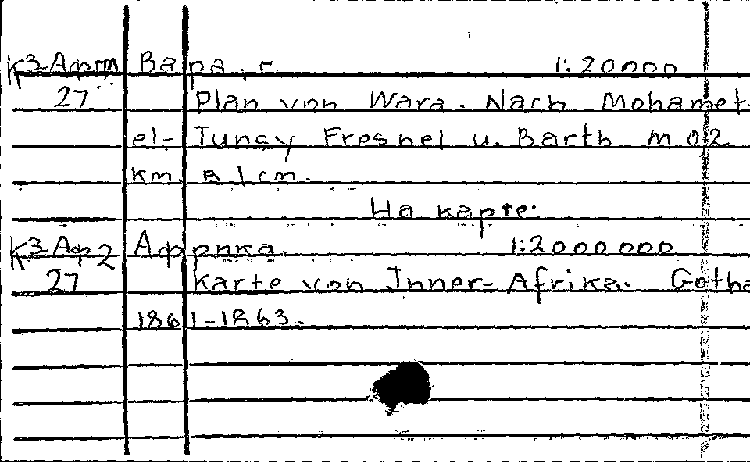 К3-Африл Вара, г. 1:20000
27 Plan von Wara. Nach Mohamet
el- Tunsy Fresnel u. Barth m 0.2
km. в 1 cm.
На карте:
К3-Аф2 Африка 1:2000000
27 Karte von Inner-Afrika. Gotha
1861-1863.